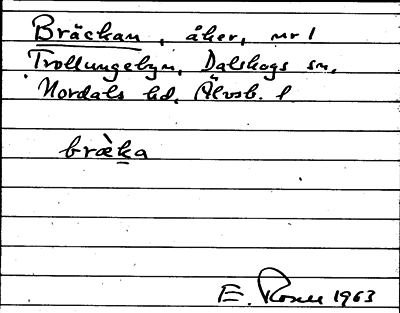 Bräckan, åker, nr 1
Trollungebyn, Dalskogs sn,
Nordals hd, Älvsb. l
bræ̀ka
E. Rosell 1963